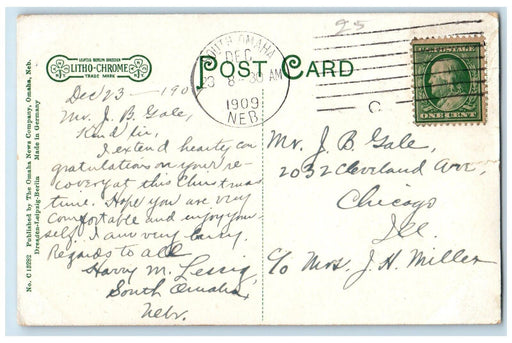 25
LEIPZIG BERLIN DRESDEN
LITHO-CHROME
TRADE MARK
POST CARD
SOUTH OMAHA
DEC
23 8-30 AM
1909
NEB.
C
U.S. POSTAGE
ONE CENT
No. C 12252 Published by The Omaha News Company, Omaha, Neb.
Dresden-Leipzig-Berlin Made in Germany
Dec 23 — 190
Mr. J. B. Gale,
Kind sir,
I extend hearty con
gratulations on your re-
covery at this Christmas
time. Hope you are very
comfortable and enjoy your
self. I am very busy.
Regards to all
Harry M. Lessig,
South Omaha,
Nebr.
Mr. J. B. Gale,
2032 Cleveland Ave,
Chicago
Ill.
c/o Mrs. J. H. Miller